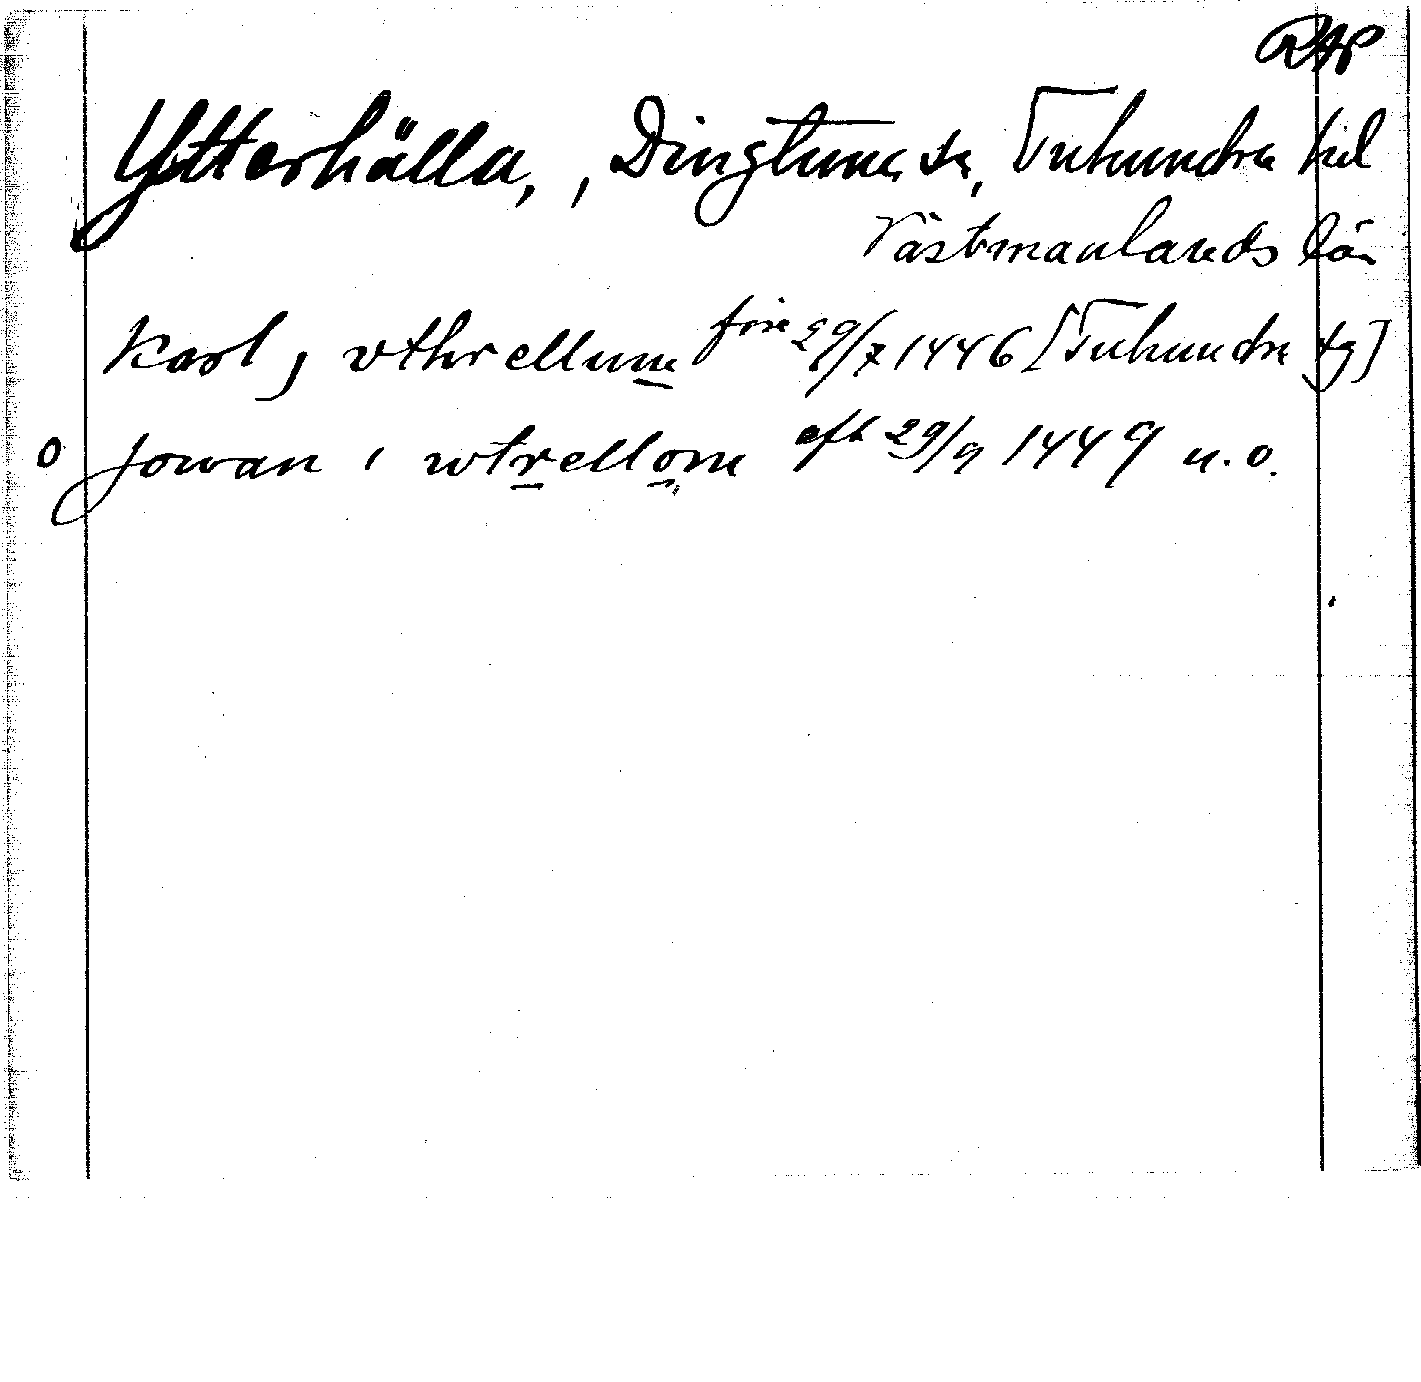 RAP
Ytterhälla, , Dingtuna sn, Tuhundra hd
Västmanlands län
Karl j vthrellum före 29/7 1446 [Tuhundra tg]
o Jowan i wtrellom eft 29/9 1449 u. o.